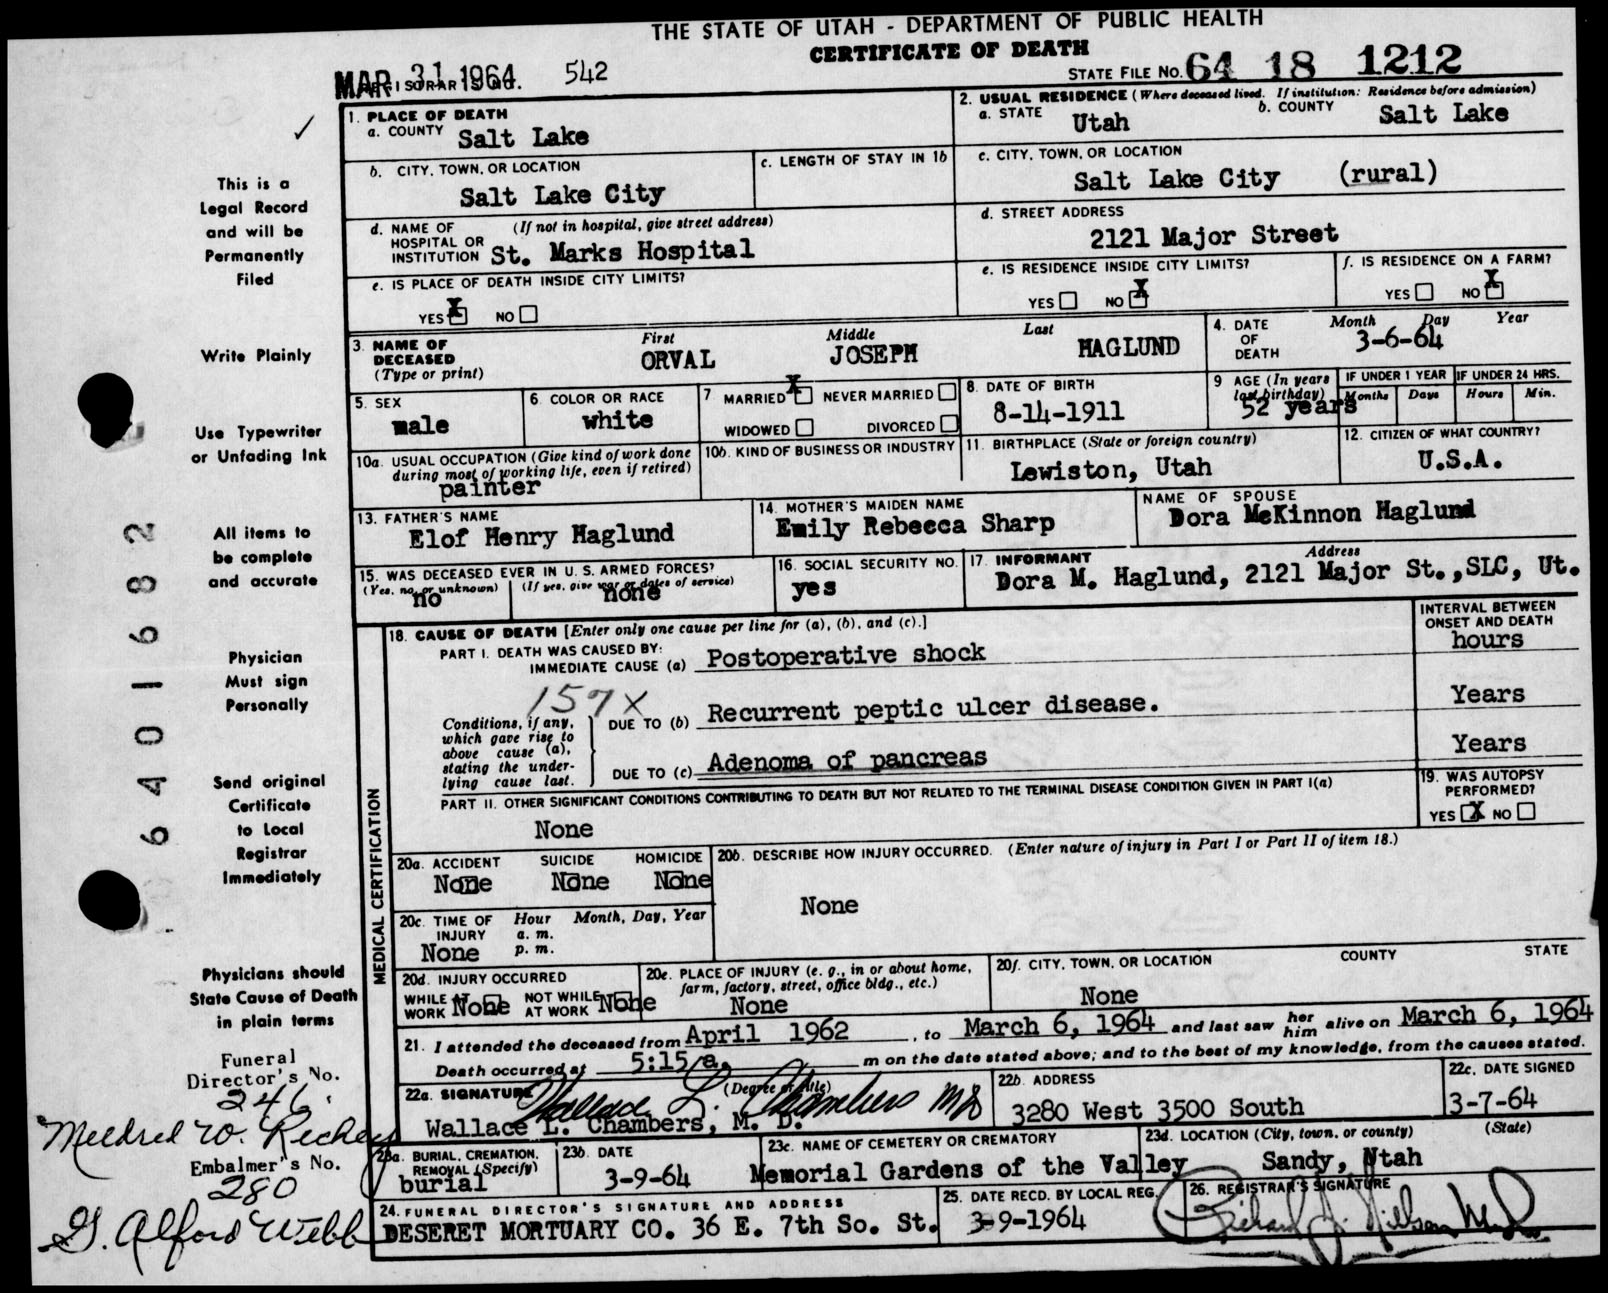 THE STATE OF UTAH - DEPARTMENT OF PUBLIC HEALTH
CERTIFICATE OF DEATH
MAR 31 1964 REGISTRAR'S NO. 542
STATE FILE NO. 64 18 1212
1. PLACE OF DEATH
a. COUNTY Salt Lake
2. USUAL RESIDENCE (Where deceased lived. If institution: Residence before admission)
a. STATE Utah b. COUNTY Salt Lake
b. CITY, TOWN, OR LOCATION Salt Lake City
c. LENGTH OF STAY IN 1b
c. CITY, TOWN, OR LOCATION
Salt Lake City (rural)
d. NAME OF HOSPITAL OR INSTITUTION (If not in hospital, give street address)
St. Marks Hospital
d. STREET ADDRESS
2121 Major Street
e. IS PLACE OF DEATH INSIDE CITY LIMITS?
YES X NO
e. IS RESIDENCE INSIDE CITY LIMITS?
YES NO X
f. IS RESIDENCE ON A FARM?
YES NO X
3. NAME OF DECEASED (Type or print)
First Middle Last
ORVAL JOSEPH HAGLUND
4. DATE OF DEATH Month Day Year
3-6-64
5. SEX
male
6. COLOR OR RACE
white
7 MARRIED X NEVER MARRIED
WIDOWED DIVORCED
8. DATE OF BIRTH
8-14-1911
9 AGE (In years last birthday)
52 years
IF UNDER 1 YEAR Months Days
IF UNDER 24 HRS. Hours Min.
10a. USUAL OCCUPATION (Give kind of work done during most of working life, even if retired)
painter
10b. KIND OF BUSINESS OR INDUSTRY
11. BIRTHPLACE (State or foreign country)
Lewiston, Utah
12. CITIZEN OF WHAT COUNTRY?
U.S.A.
13. FATHER'S NAME
Elof Henry Haglund
14. MOTHER'S MAIDEN NAME
Emily Rebecca Sharp
NAME OF SPOUSE
Dora McKinnon Haglund
15. WAS DECEASED EVER IN U. S. ARMED FORCES?
(Yes, no, or unknown) (If yes, give war or dates of service)
no none
16. SOCIAL SECURITY NO.
yes
17. INFORMANT Address
Dora M. Haglund, 2121 Major St., SLC, Ut.
MEDICAL CERTIFICATION
18. CAUSE OF DEATH [Enter only one cause per line for (a), (b), and (c).]
INTERVAL BETWEEN ONSET AND DEATH
PART I. DEATH WAS CAUSED BY:
IMMEDIATE CAUSE (a) Postoperative shock hours
157X
Conditions, if any, which gave rise to above cause (a), stating the underlying cause last.
DUE TO (b) Recurrent peptic ulcer disease. Years
DUE TO (c) Adenoma of pancreas Years
PART II. OTHER SIGNIFICANT CONDITIONS CONTRIBUTING TO DEATH BUT NOT RELATED TO THE TERMINAL DISEASE CONDITION GIVEN IN PART I(a)
None
19. WAS AUTOPSY PERFORMED?
YES X NO
20a. ACCIDENT SUICIDE HOMICIDE
None None None
20b. DESCRIBE HOW INJURY OCCURRED. (Enter nature of injury in Part I or Part II of item 18.)
None
20c. TIME OF INJURY Hour Month, Day, Year
a. m.
p. m.
None
20d. INJURY OCCURRED
WHILE AT WORK None NOT WHILE AT WORK None
20e. PLACE OF INJURY (e. g., in or about home, farm, factory, street, office bldg., etc.)
None
20f. CITY, TOWN, OR LOCATION COUNTY STATE
None
21. I attended the deceased from April 1962, to March 6, 1964 and last saw her him alive on March 6, 1964
Death occurred at 5:15 a. m on the date stated above; and to the best of my knowledge, from the causes stated.
22a. SIGNATURE (Degree or title)
Wallace L. Chambers MD
Wallace L. Chambers, M. D.
22b. ADDRESS
3280 West 3500 South
22c. DATE SIGNED
3-7-64
23a. BURIAL, CREMATION, REMOVAL (Specify)
burial
23b. DATE
3-9-64
23c. NAME OF CEMETERY OR CREMATORY
Memorial Gardens of the Valley
23d. LOCATION (City, town, or county) (State)
Sandy, Utah
24. FUNERAL DIRECTOR'S SIGNATURE AND ADDRESS
DESERET MORTUARY CO. 36 E. 7th So. St.
25. DATE RECD. BY LOCAL REG.
3-9-1964
26. REGISTRAR'S SIGNATURE
This is a
Legal Record
and will be
Permanently
Filed
Write Plainly
Use Typewriter
or Unfading Ink
All items to
be complete
and accurate
Physician
Must sign
Personally
Send original
Certificate
to Local
Registrar
Immediately
Physicians should
State Cause of Death
in plain terms
Funeral
Director's No.
246
Mildred W. Richey
Embalmer's No.
280
G. Alford Webb
6401682